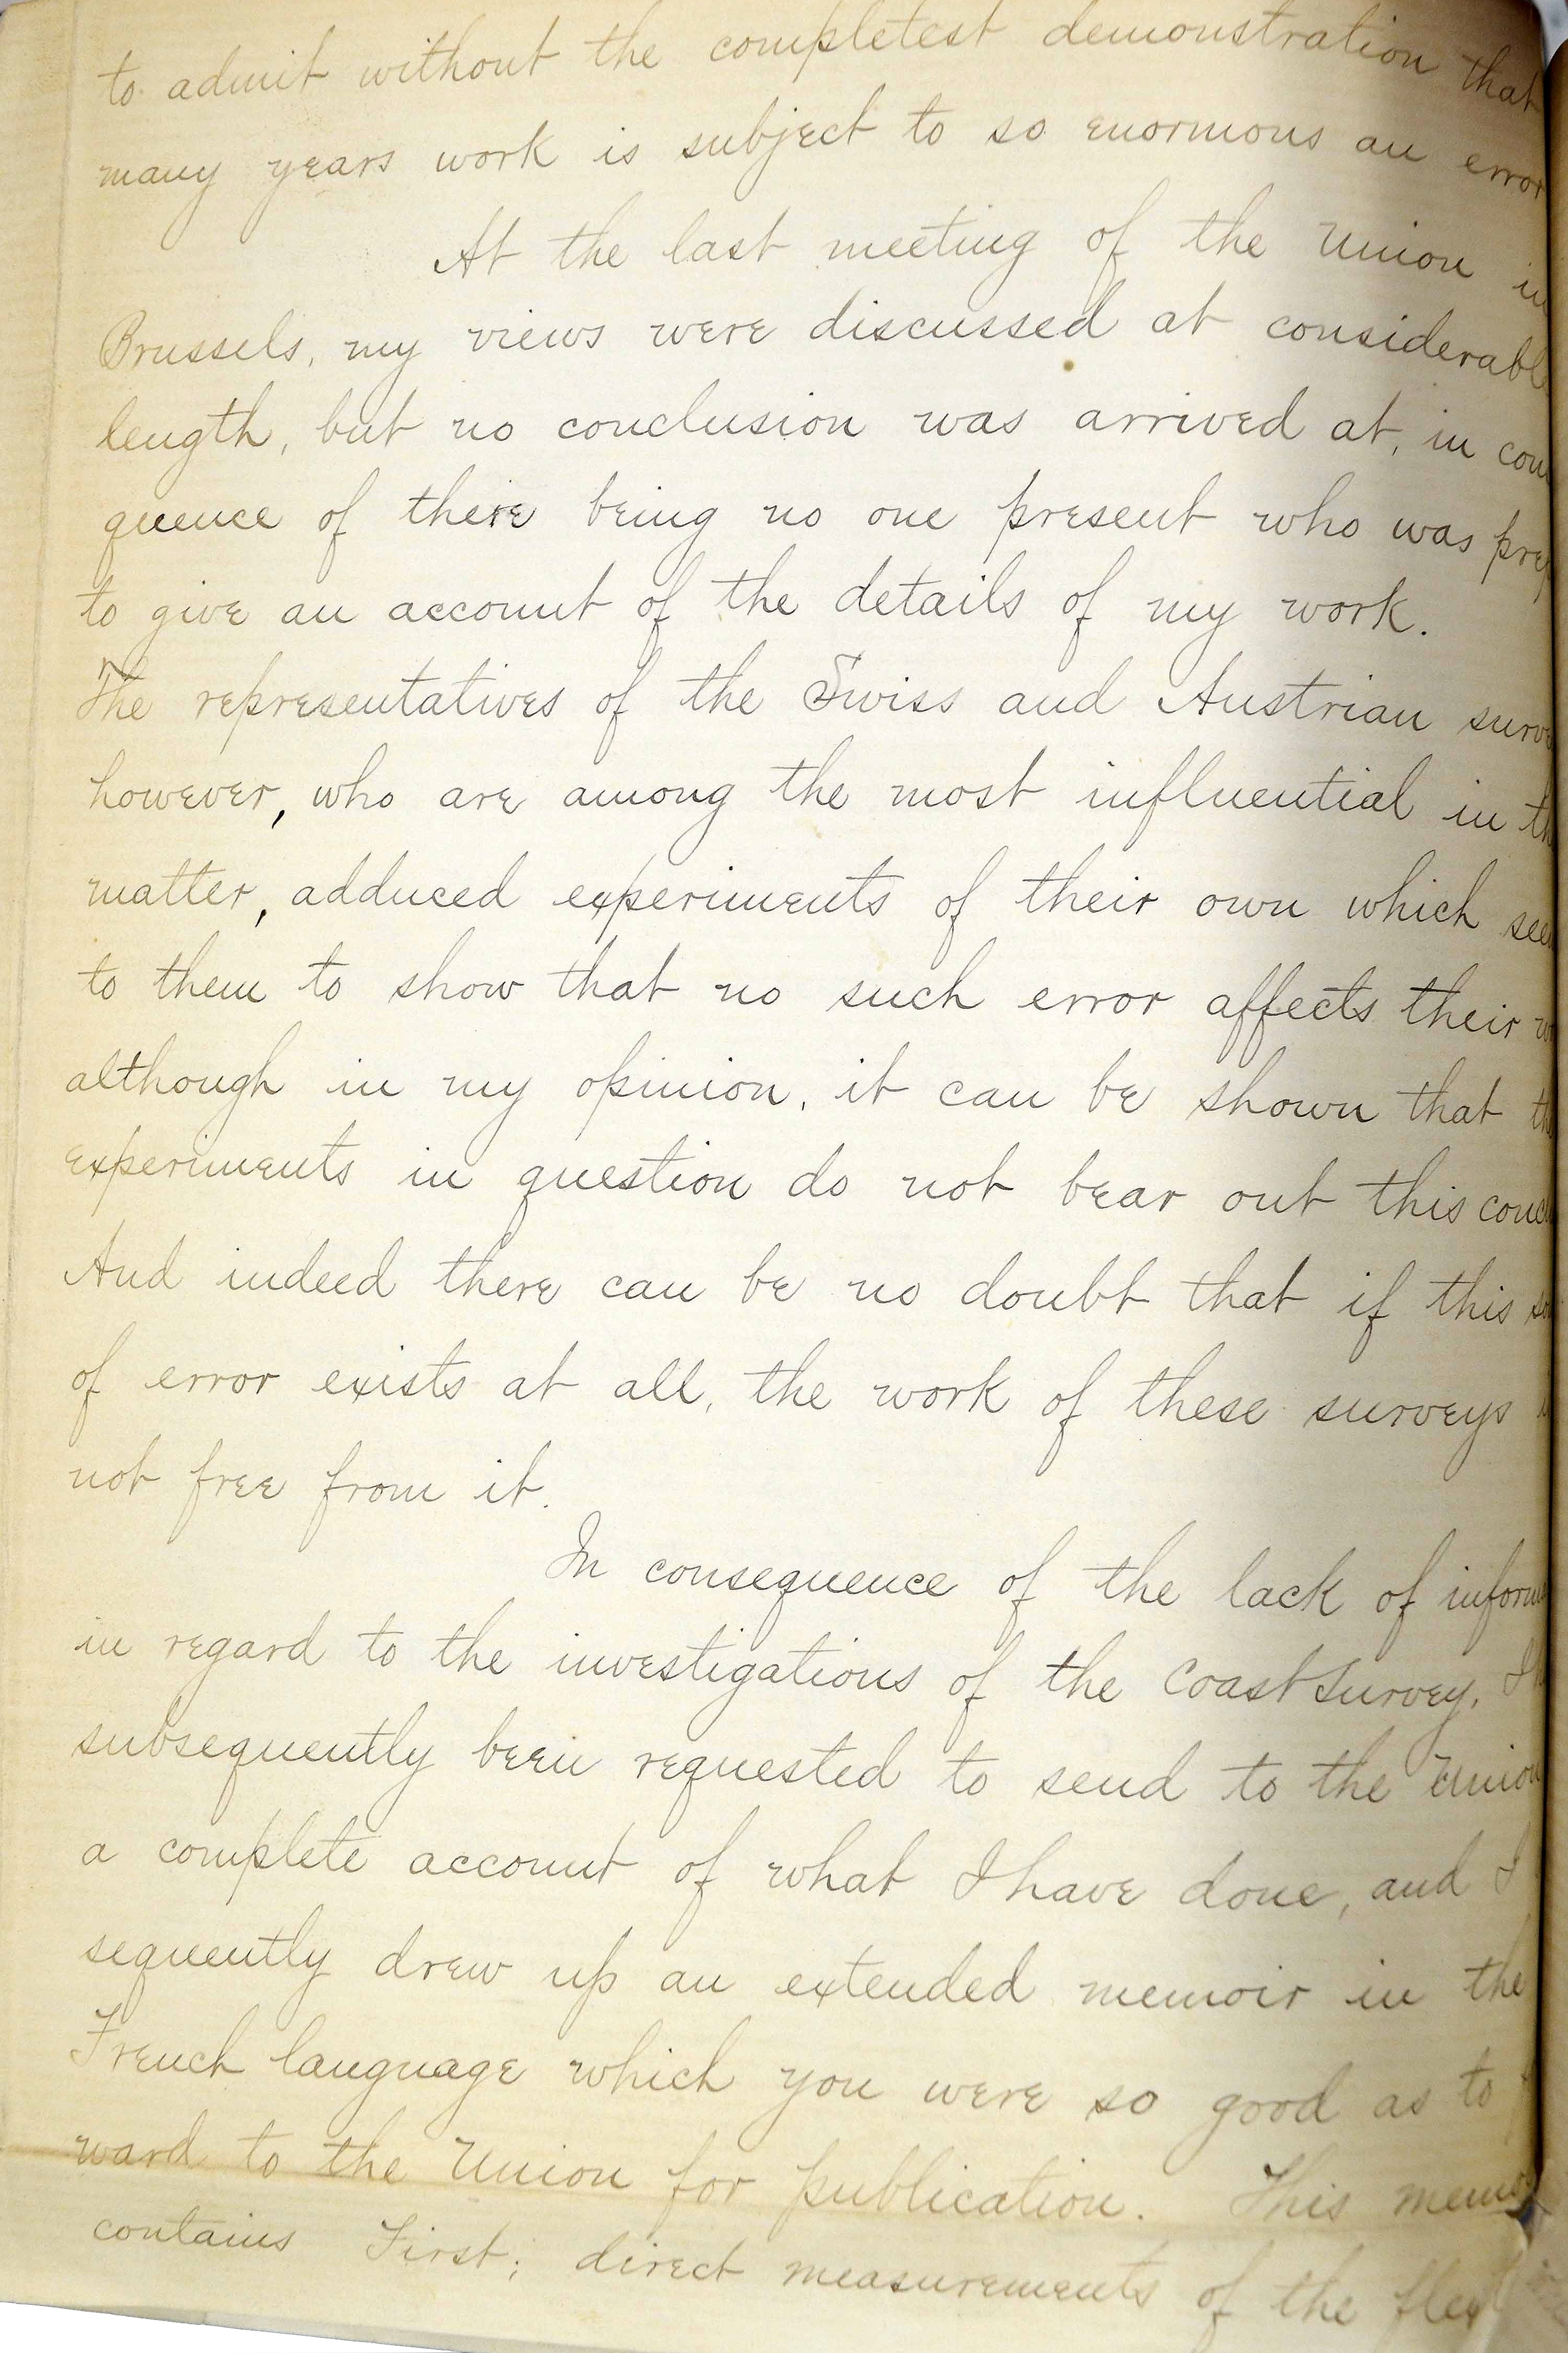 to admit without the completest demonstration that
many years work is subject to so enormous an error
At the last meeting of the Union in
Brussels, my views were discussed at considerabl
length, but no conclusion was arrived at, in con
quence of there being no one present who was prep
to give an account of the details of my work.
The representatives of the Swiss and Austrian surve
however, who are among the most influential in th
matter, adduced experiments of their own which see
to them to show that no such error affects their w
although in my opinion, it can be shown that th
experiments in question do not bear out this conc
And indeed there can be no doubt that if this so
of error exists at all, the work of these surveys
not free from it.
In consequence of the lack of inform
in regard to the investigations of the Coast Survey, I
subsequently been requested to send to the Union
a complete account of what I have done, and I
sequently drew up an extended memoir in the
French language which you were so good as to
ward to the Union for publication. This memo
contains First; direct measurements of the flex